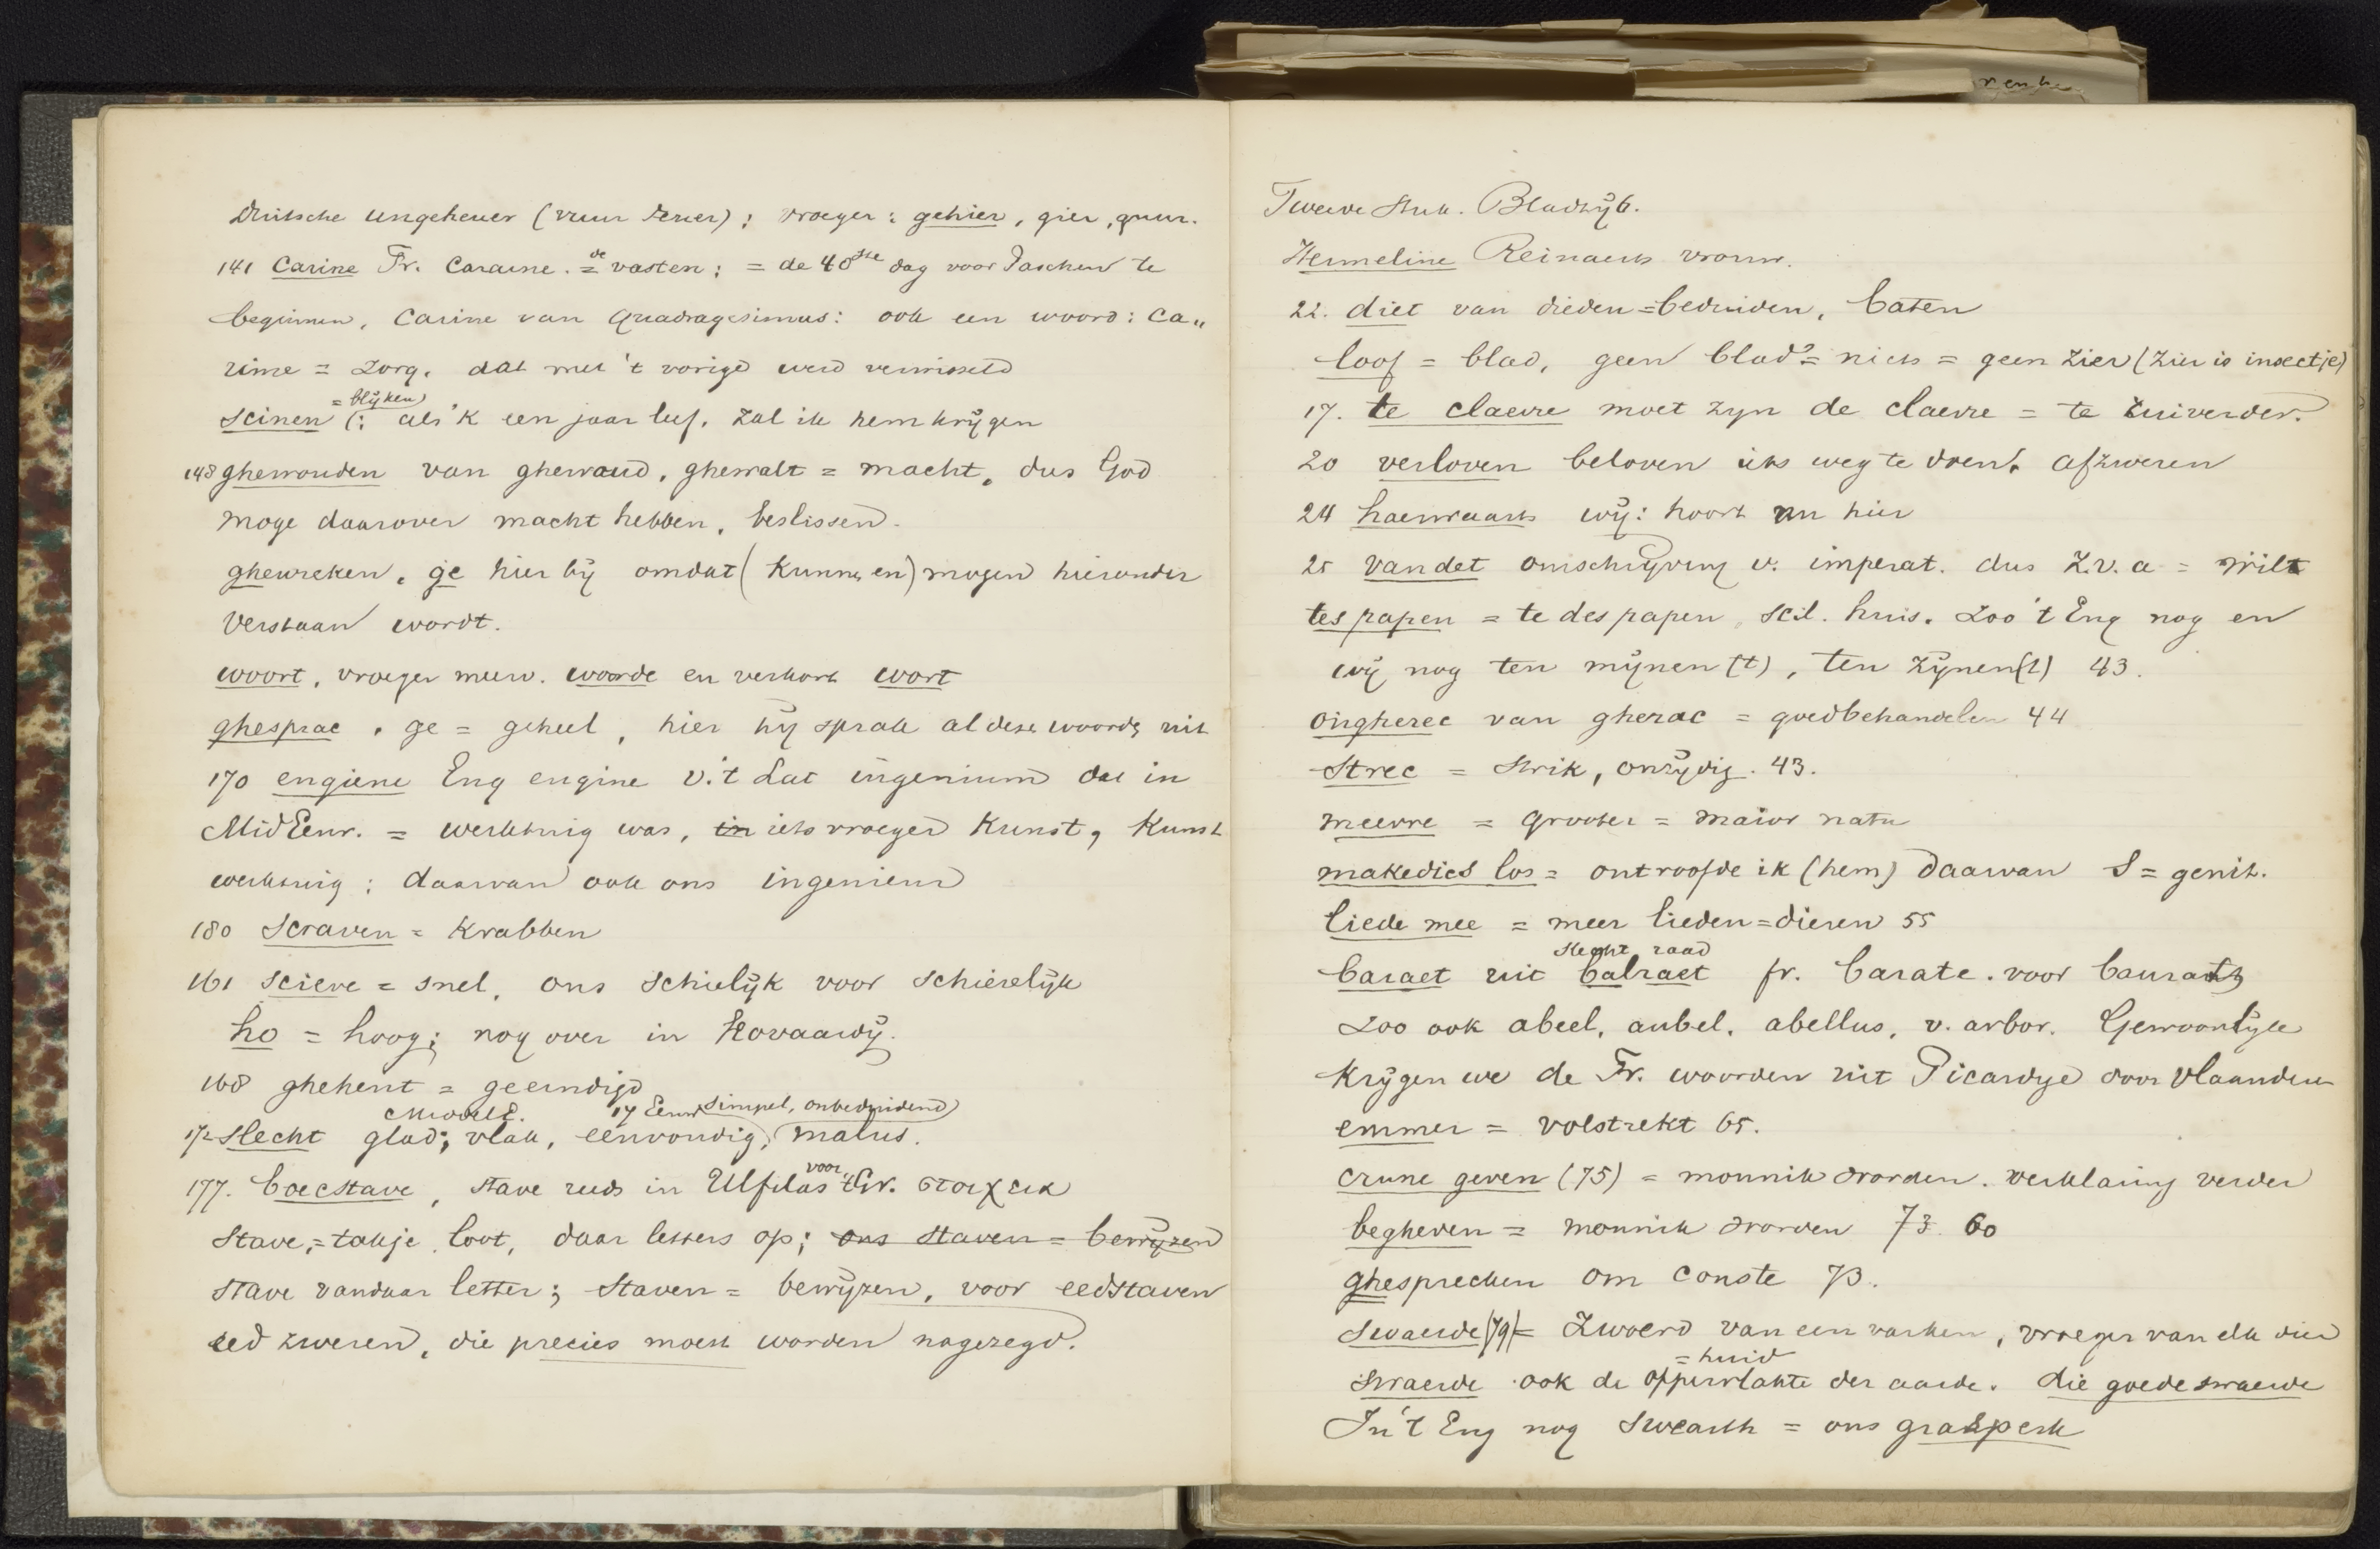 Duitsche ungeheuer (vuur Feuer); vroeger: gehier, gier, guur.
141 Carine Fr. Caraeme. = de vasten; = de 40ste dag voor Paschen te
beginnen, Carine van Quadragesimus: ook een woord: ca„
rine = zorg, dat met 't vorige werd verwisseld
scinen (= blijken): als 'k een jaar leef, zal ik hem krijgen
148 ghewouden van ghewaud, ghewalt = macht, dus God
moge daarover macht hebben, beslissen.
ghewreken, ge hier bij omdat (kunnen en) mogen hieronder
verstaan wordt.
woort, vroeger meerv. woorde en verkort wort
ghesprac, ge = geheel, hier hij sprak al deze woorden uit
170 engiene Eng engine v.'t Lat ingenium dat in
Mid Eeuw. = werktuig was, in iets vroeger Kunst, Kunst
werktuig; daarvan ook ons ingenieur
180 Scraven = Krabben
161 sciere = snel, ons schielijk voor schierelijk
ho = hoog; nog over in Hovaardij.
168 ghehent = geeindigd
MiddelE. 17 Eeuw simpel, onbeduidend
172 slecht glad; vlak, eenvoudig, malus.
177. boecstave, stave reeds in Ulfilas voor 't Gr. στοιχεια
Stave, = takje, loot, daar letters op; ons staven = bewijzen
stave vandaar letter; staven = bewijzen, voor eedstaven
eed zweren, die precies moest worden nagezegd.
Tweede Stuk. Bladzij 6.
Hermeline Reinaerts vrouw.
22. diet van dieden = beduiden, baten
loof = blad, geen blad = niets = geen zier (zier is insectje)
17. te claerre moet zyn de claerre = te zuiverder.
20 verloven beloven iets weg te doen, afzweren
24 haerwaarts wij: hoort nu hier
25 vandet omschrijving v. imperat. dus z.v.a = wilt
tes papen = te des papen, scil. huis. Zoo 't Eng nog en
wij nog ten mijnen (t), ten zijnen (t) 43.
ongherec van gherac = goedbehandelen 44
Strec = strik, onzijdig. 43.
meerre = grooter = maior natu
makedics los = ontroofde ik (hem) daarvan S = genit.
liede mee = meer lieden = dieren 55
slecht raad
baraet uit balraet fr. barate. voor bauraets
Zoo ook abeel, aubel, abellus, v. arbor. Gewoonlijk
krijgen we de Fr. woorden uit Picardye door Vlaanderen
emmer = volstrekt 65.
crune geven (75) = monnik worden. verklaring verder
begheven = monnik worden 73. 60
ghesprecken om conste 73.
Swaerde (79) = Zwoerd van een varken, vroeger van elk dier
= huid
swaerde ook de oppervlakte der aarde. die goede swaerde
In 't Eng nog swearth = ons grasperk